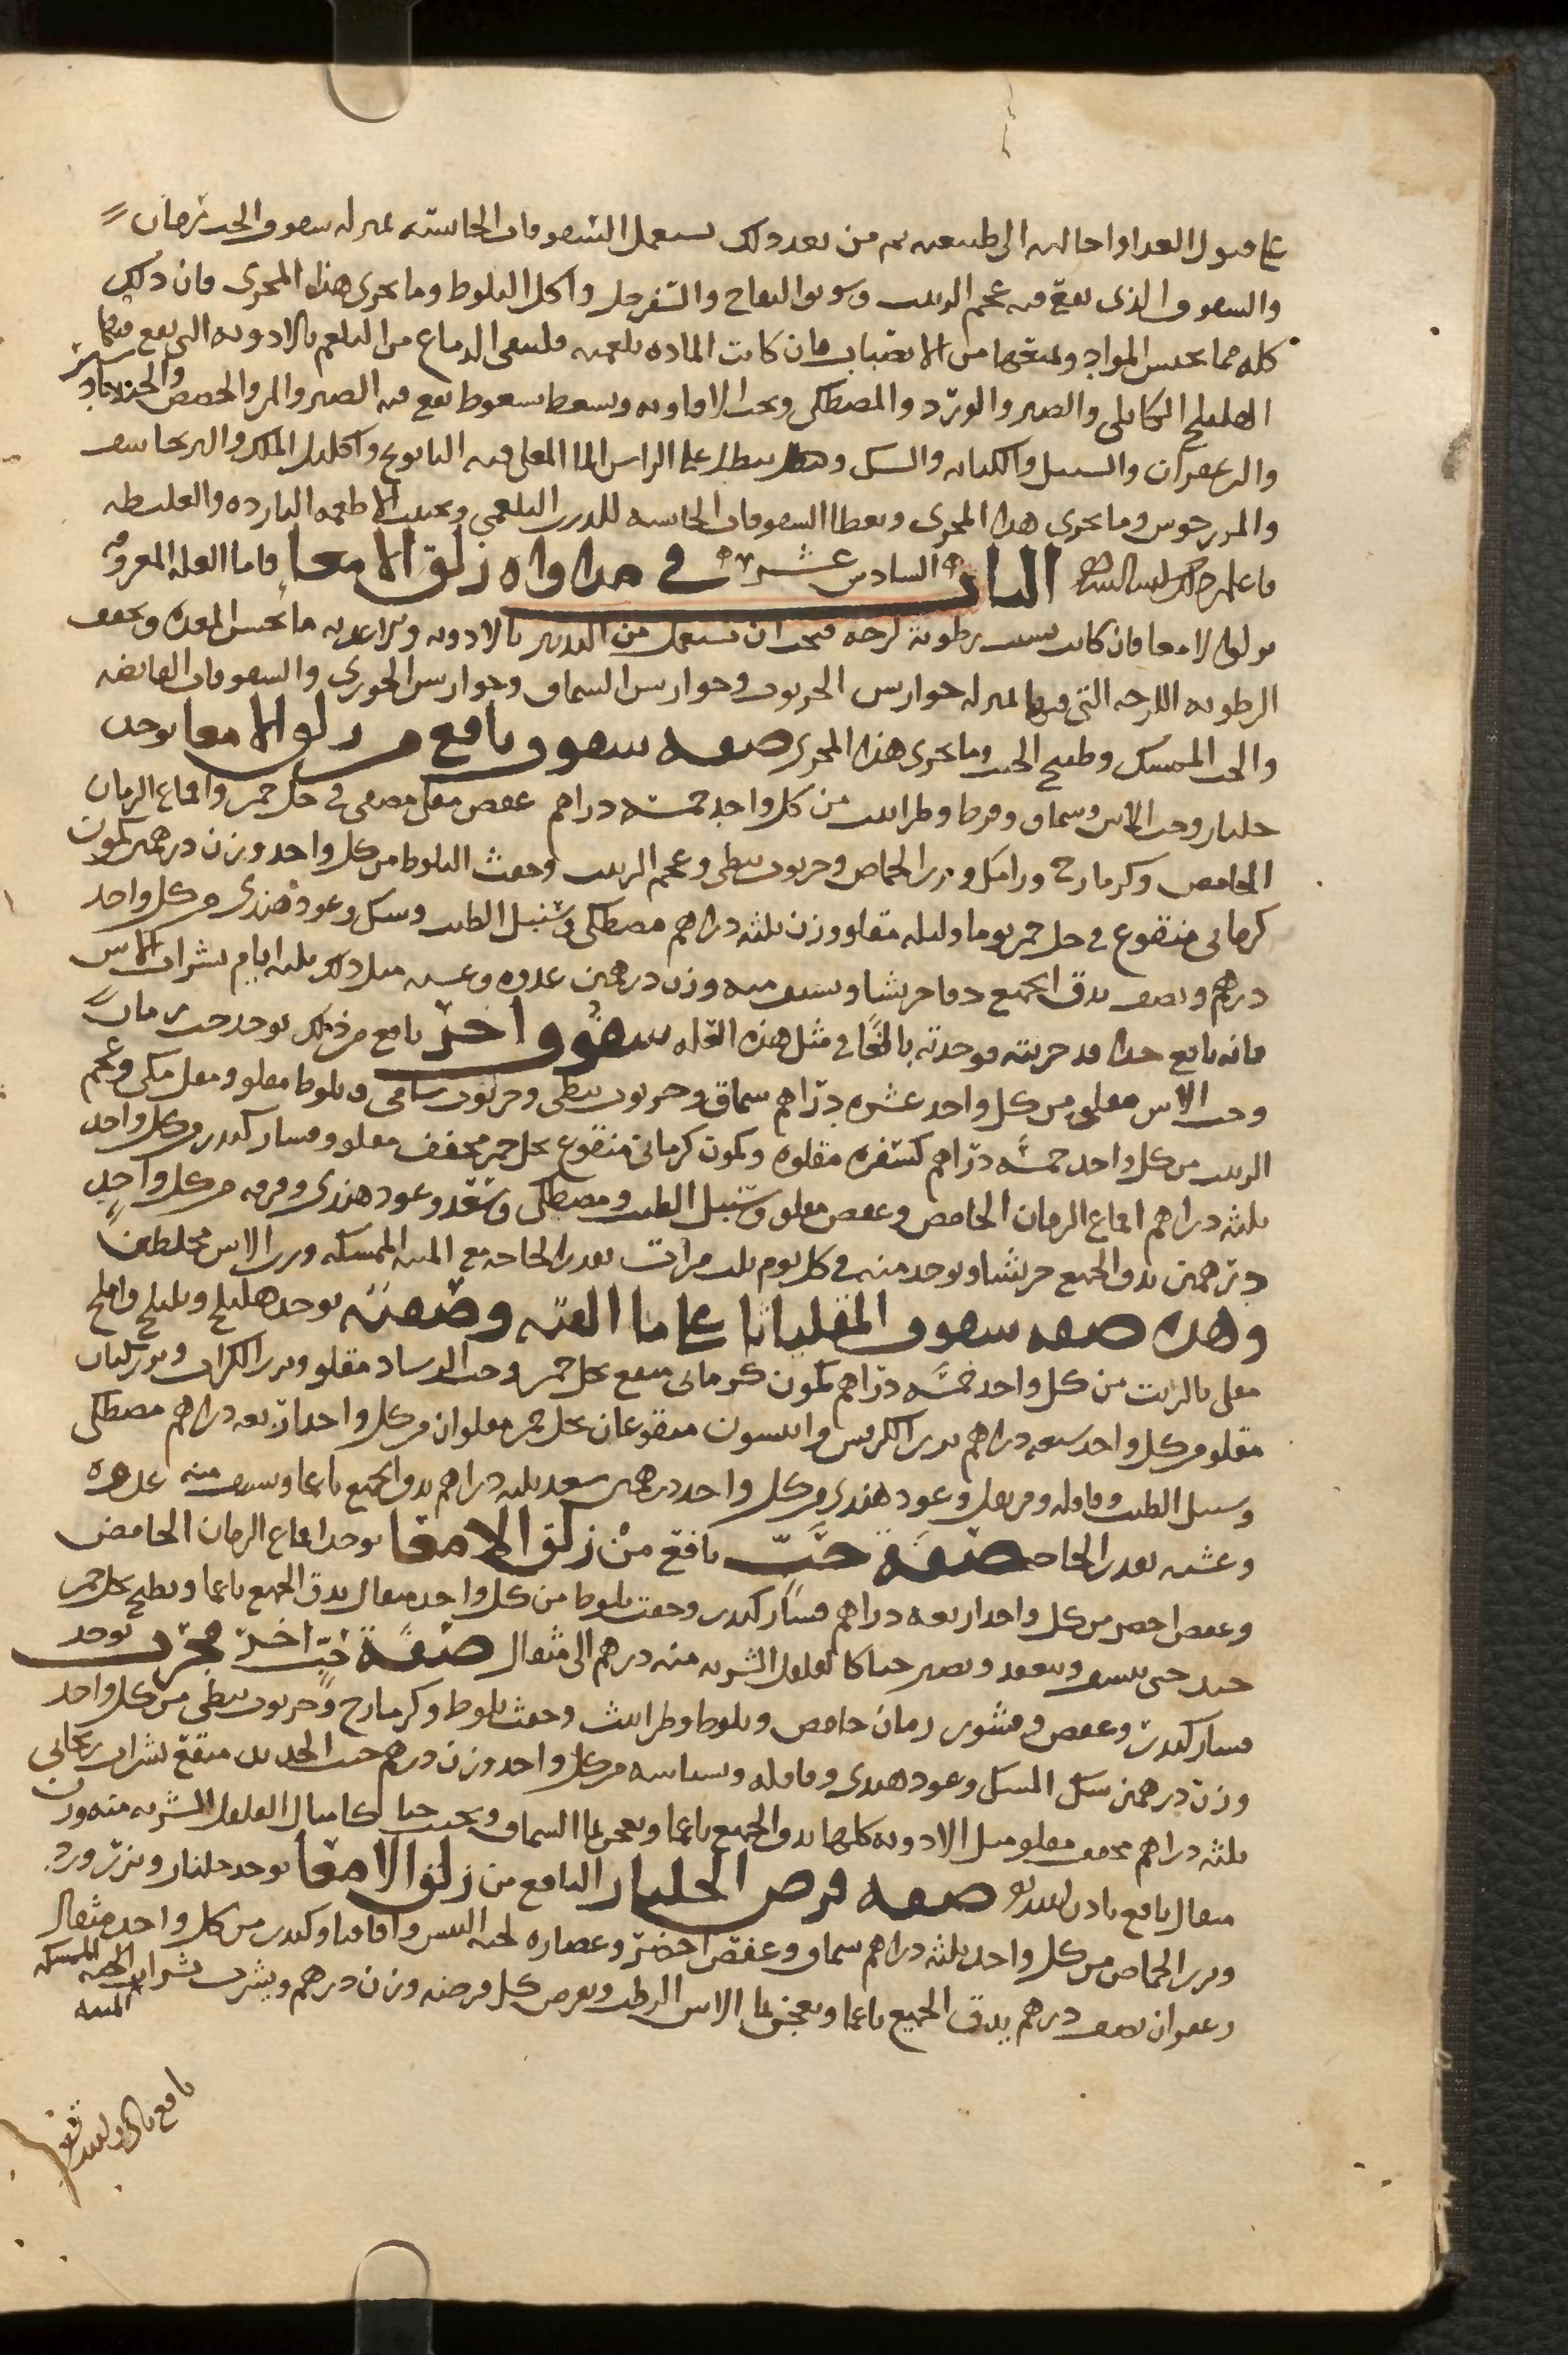 على قبول الغذا واحالته الى طبيعته ثم من بعد ذلك يستعمل السفوفات الحابسة بمنزلة سفوف الحب رمان
والسفوف الذى يقع فيه عجم الزبيب وسويق التفاح والسفرجل واكل البلوط وما يجرى هذا المجرى فان ذلك
كله مما يحبس المواد ويمنعها من الانصباب فان كانت المادة بلغمية فلينقى الدماغ من البلغم بالادوية التى يقع فيها
الهليلج الكابلى والصبر والورد والمصطكى وحب الافاويه ويسعط بسعوط يقع فيه الصبر والمر والحضض والجندبادستر
والزعفران والسنبل والكبابه والسك وينطل على الراس الما المغلى فيه البابونج واكليل الملك والبرنجاسف
والمرزجوش وما يجرى هذا المجرى ويعطا السفوفات الحابسة للذرب البلغمى ويجنب الاطعمه البارده والغليظه
فاعلم ذلك ان شا الله الباب السادس عشر فى مداواة زلق الامعا فاما العلة المعروفه
بزلق الامعا فان كانت بسبب رطوبة لزجه فيجب ان تستعمل من التدبير بالادويه والاغذيه ما يحبس المعده ويجفف
الرطوبه اللزجه التى فيها بمنزله جوارش الخرنوب وجوارش السماق وجوارش الخوزى والسفوفات القابضه
والحب الممسك وطبيخ الحب وما يجرى هذا المجرى صفه سفوف نافع من زلق الامعا يوخذ
جلنار وحب الاس وسماق وقرط وطراثيث من كل واحد خمسة دراهم عفص مقلى مصفى فى خل خمر واقماع الرمان
الحامض وكزمازج ورامك وبزر الحماض وخرنوب نبطى وعجم الزبيب وجفت البلوط من كل واحد وزن درهمين كمون
كرمانى منقوع فى خل خمر يوما وليله مقلو وزن ثلثه دراهم مصطكى وسنبل الطيب وسك وعود هندى من كل واحد
درهم ونصف يدق الجميع دقا جريشا ويستف منه وزن درهمين غدوه وعشيه مثل ذلك ثلثه ايام بشراب الاس
فانه نافع جدا قد جربته فوجدته بالغا فى مثل هذه العله سفوف اخر نافع من ذلك يوخذ حب رمان
وحب الاس مقلى من كل واحد عشره دراهم سماق وخرنوب نبطى وخرنوب شامى وبلوط مقلو ومقل مكى وعجم
الزبيب من كل واحد خمسه دراهم كسفره مقلوه وكمون كرمانى منقوع بخل خمر مجفف مقلو وقسار كندر من كل واحد
ثلثه دراهم اقماع الرمان الحامض وعفص مقلو وسنبل الطيب ومصطكى وسعد وعود هندى وقرفه من كل واحد
درهمين يدق الجميع جريشا ويوخذ منه فى كل يوم ثلث مرات بقدر الحاجه مع الميبه الممسكه ورب الاس مخلطين
وهذه صفه سفوف المقلياثا على ما الفته وصفته يوخذ هليلج وبليلج واملج
مقلى بالزيت من كل واحد خمسه دراهم كمون كرمانى منقع بخل خمر وحب الرشاد مقلو وبزر الكراث وبزر كتان
مقلو من كل واحد سبعه دراهم بزر الكرفس وانيسون منقوعان بخل خمر مقلوان من كل واحد اربعه دراهم مصطكى
وسنبل الطيب وقاقله وقرنفل وعود هندى من كل واحد درهمين سعد ثلثه دراهم يدق الجميع ناعما ويستف منه غدوه
وعشيه بقدر الحاجه صفة حب نافع من زلق الامعا يوخذ اقماع الرمان الحامض
وعفص اخضر من كل واحد اربعه دراهم قسار كندر وجفت بلوط من كل واحد مثقال يدق الجميع ناعما ويطبخ بخل خمر
جيد حتى ينشف وينعقد ويصير حبا كالفلفل الشربه منه درهم الى مثقال صفة حب اخر مجرب يوخذ
قسار كندر وعفص وقشور رمان حامض وبلوط وطراثيث وجفت بلوط وكزمازج وخرنوب نبطى من كل واحد
وزن درهمين سك المسك وعود هندى وقاقله وبسباسه من كل واحد وزن درهم خبث الحديد منقع بشراب ريحانى
ثلثه دراهم مجفف مقلو مثل الادويه كلها يدق الجميع ناعما ويعجن بما السماق ويحبب حبا كامثال الفلفل الشربه منه وزن
مثقال نافع باذن الله تع صفه قرص الجلنار النافع من زلق الامعا يوخذ جلنار وبزر ورد
وبزر الحماض من كل واحد ثلثه دراهم سماق وعفص اخضر وعصاره لحيه التيس واقاقيا وكندر من كل واحد مثقال
زعفران نصف درهم يدق الجميع ناعما ويعجن بما الاس الرطب ويقرص كل قرصه وزن درهم ويشرب بشراب الميبه الممسكه
الميبه
نافع باذن الله تع